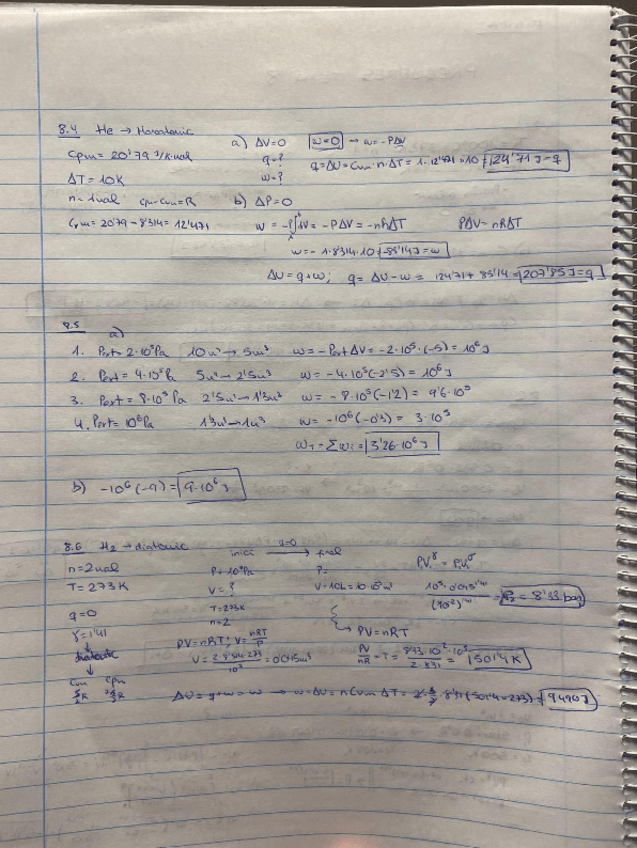 8.4 He → Monoatomic
Cpm = 20'79 J/K·mol
ΔT = 10K
n = 1mol cpm-cvm=R
Cvm = 20'79 - 8'314 = 12'471
a) ΔV=0 w=0 → w=-PΔV
q=? q=ΔU=Cvm·n·ΔT = 1·12'471·10 = 124'71J=q
w=?
b) ΔP=0
w = -P∫dV = -PΔV = -nRΔT PΔV=nRΔT
w=-1·8'314·10 = -83'14J=w
ΔU=q+w; q=ΔU-w = 124'71+83'14=207'85J=q
8.5 a)
1. Pext=2·10⁵Pa 10m³→5m³ w=-PextΔV=-2·10⁵·(-5)=10⁶J
2. Pext=4·10⁵Pa 5m³→2'5m³ w=-4·10⁵(-2'5)=10⁶J
3. Pext=8·10⁵Pa 2'5m³→1'3m³ w=-8·10⁵(-1'2)=9'6·10⁵
4. Pext=10⁶Pa 1'3m³→1m³ w=-10⁶(-0'3)=3·10⁵
wT=Σwi=3'26·10⁶J
b) -10⁶(-9)=9·10⁶J
8.6 H₂→diatomic
n=2mol
T=273K
q=0
γ=1'41
diatomic
Cvm Cpm
5/2R 7/2R
inici q=0 → final
P=10⁵Pa P=
V=? V=10L=10·10⁻³m³
T=273K
n=2
PV=nRT; V=nRT/P
PV=nRT
= P₂=8'33 bar
= T = = 501'4K
ΔU=q+w=w → w=ΔU=nCvmΔT=2·5/2·8'31(501'4-273)=9490J